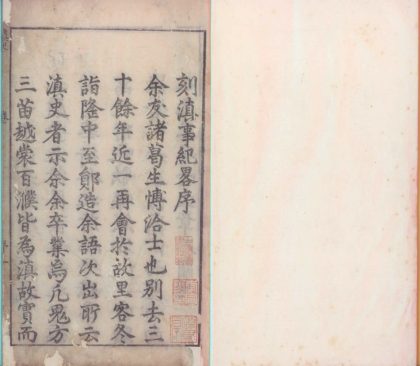 刻滇事紀畧序
余友諸葛生博洽士也別去三
十餘年近一再會於故里客冬
詣隆中至鄖造余語次出所云
滇史者示余余卒業焉凡鬼方
三苗越裳百濮皆為滇故實而